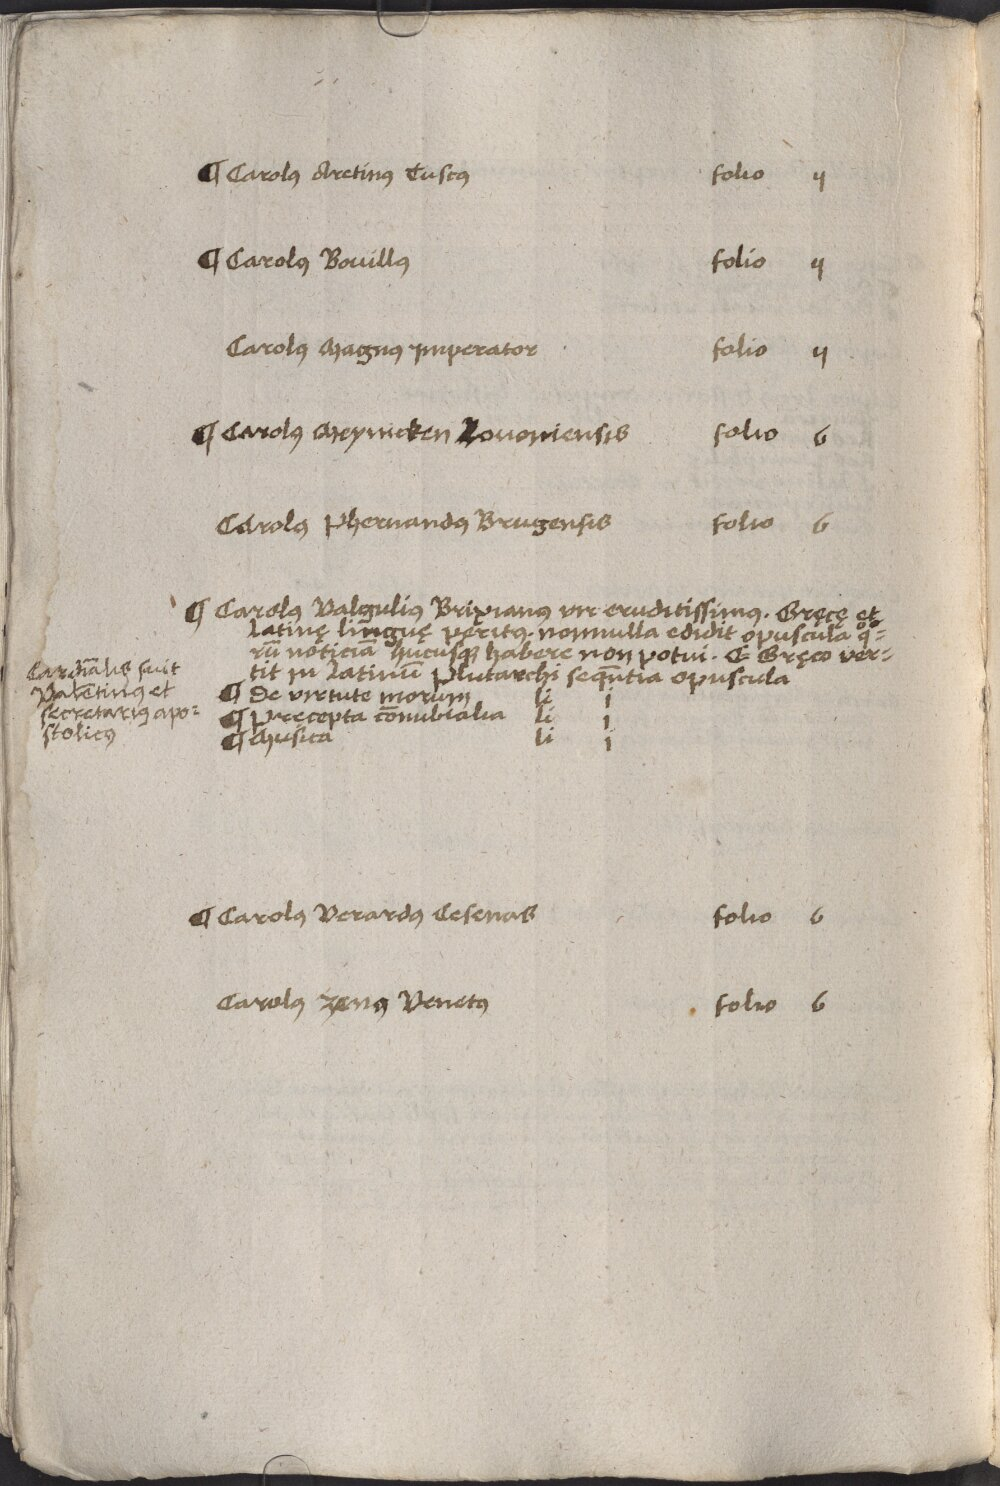 ¶ Carolꝰ Aretinꝰ Tuscꝰ folio 4
¶ Carolꝰ Bouillꝰ folio 4
Carolꝰ Magnꝰ imperator folio 4
¶ Carolꝰ Meynicken Louoniensis folio 6
Carolꝰ Phernandꝰ Brugensis folio 6
¶ Carolꝰ Valguliꝰ Brixianꝰ vir eruditissimꝰ. Gręcę et
latinę linguę peritꝰ. nonnulla edidit opuscula qͦ⸗
rū noticiā hucusqꝫ habere non potui. E Gręco ver⸗
tit in latinū Plutarchi seqn̄tia opuscula
¶ De virtute morum li i
¶ Precepta cōnubialia li i
¶ Musica li i
Cardīalis fuit
Valētinꝰ et
secretariꝰ apo⸗
stolicꝰ
¶ Carolꝰ Verardꝰ Cesenas folio 6
Carolꝰ Zenꝰ Venetꝰ folio 6